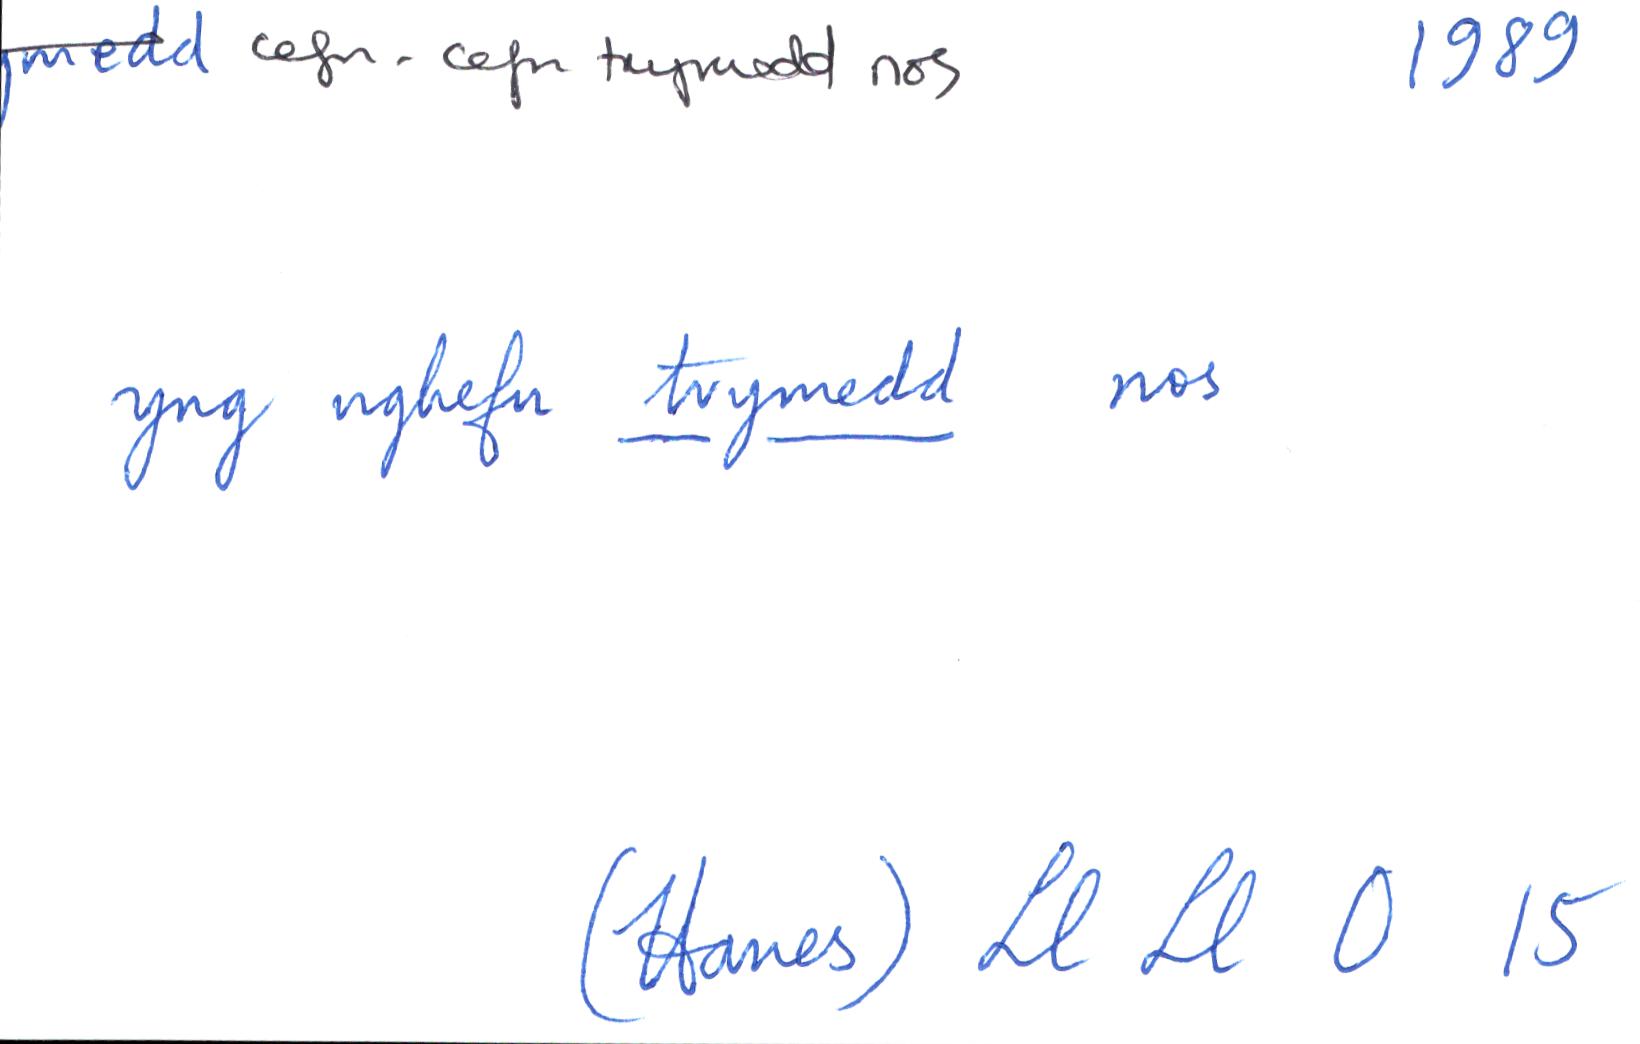 ymedd cefn - cefn trymedd nos 1989
yng nghefn trymedd nos
(Hanes) Ll Ll O 15